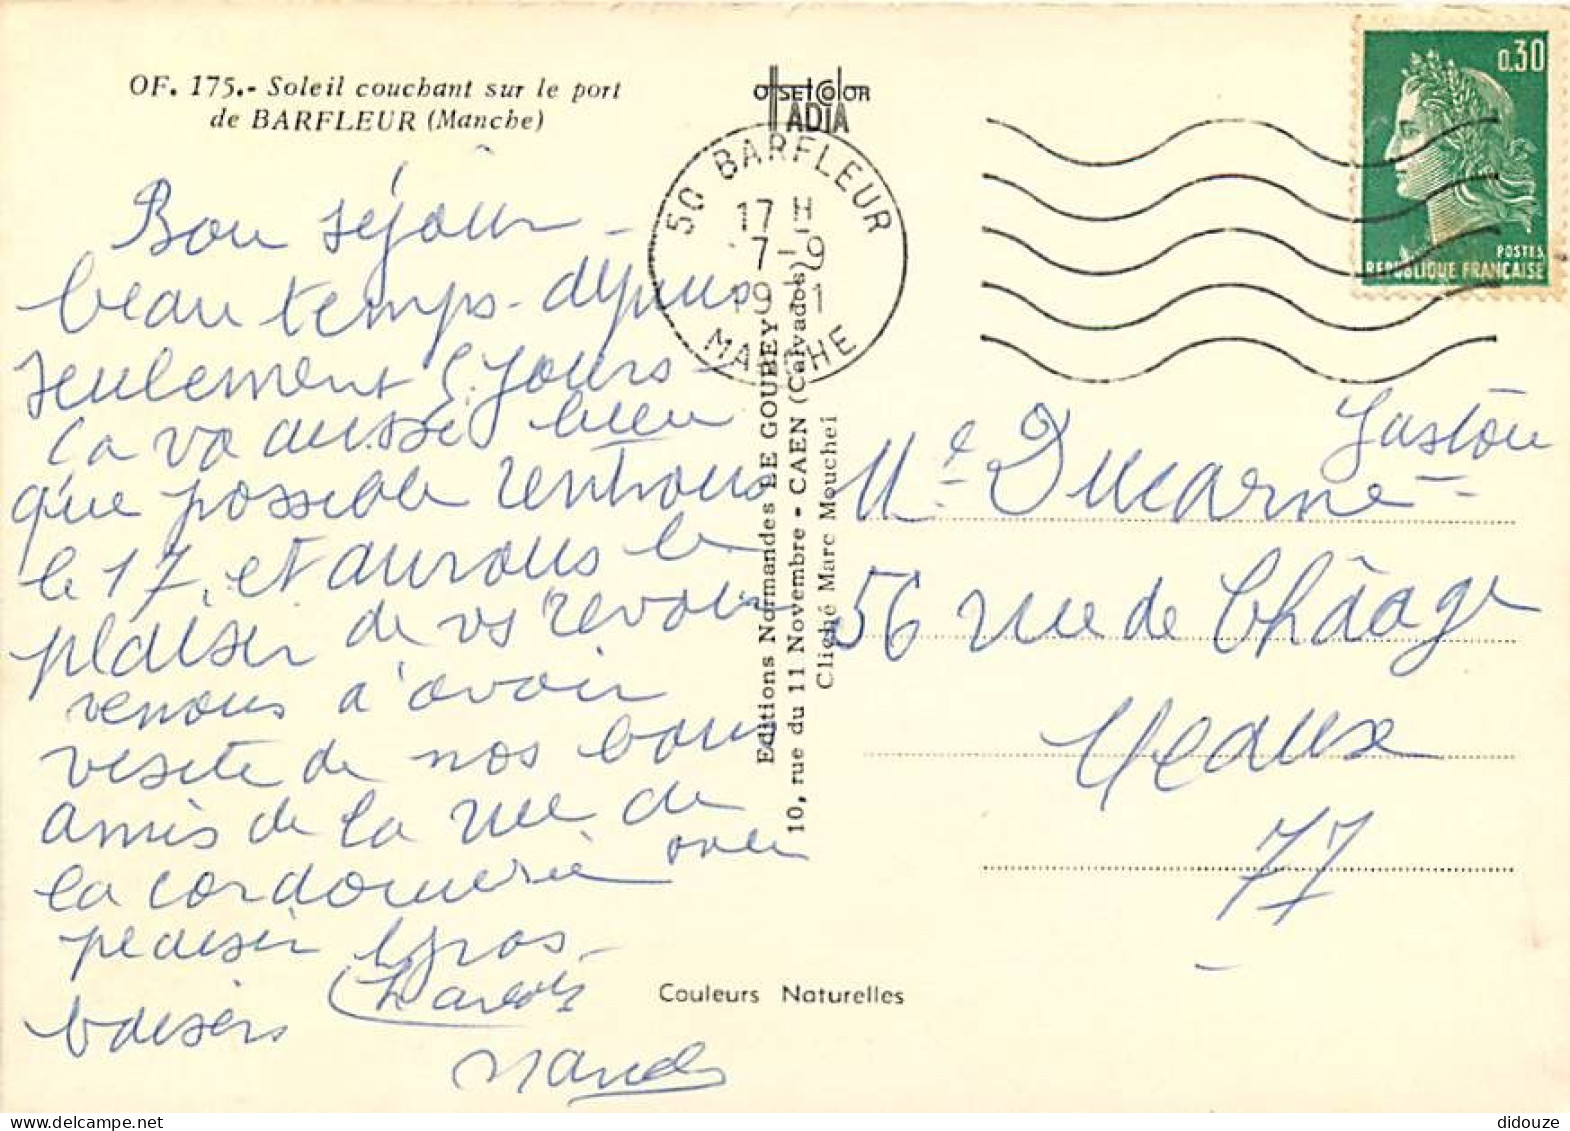 OF. 175.- Soleil couchant sur le port
de BARFLEUR (Manche)
Bon séjour -
beau temps - depuis
seulement 5 jours -
ça va aussi bien
que possible rentrons
le 17, et aurons le
plaisir de vs revoir
venons d'avoir
visite de nos bons
amis de la rue de
la cordonnerie avec
plaisir gros
baisers
OFFSETCOLOR
ADIA
50 BARFLEUR
17 H
7-9
19 1
MANCHE
Editions Normandes LE GOUBEY
10, rue du 11 Novembre - CAEN (Calvados)
Cliché Marc Mouchel
0,30
POSTES
REPUBLIQUE FRANÇAISE
Gaston
Me Ducarne
56 rue de Châage
Meaux
77
Couleurs Naturelles
didouze